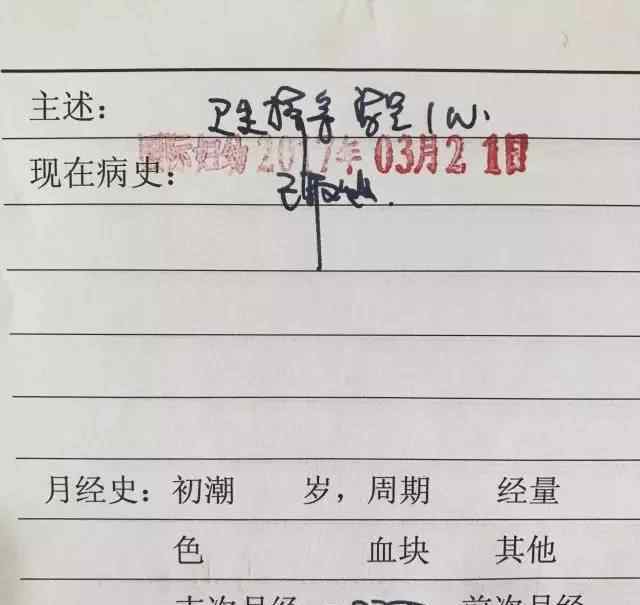 主述: 卫生棒手 1W.
国际妇幼 2017年 03月21日
现在病史: 已取出.
月经史: 初潮 岁, 周期 经量
色 血块 其他
末次月经 前次月经